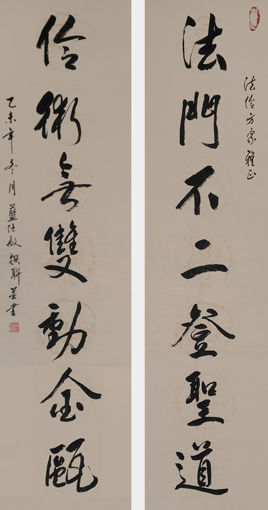 法伶方家雅正
法門不二登聖道
伶術無雙動金甌
乙未年冬月藍仕敏撰聯並書